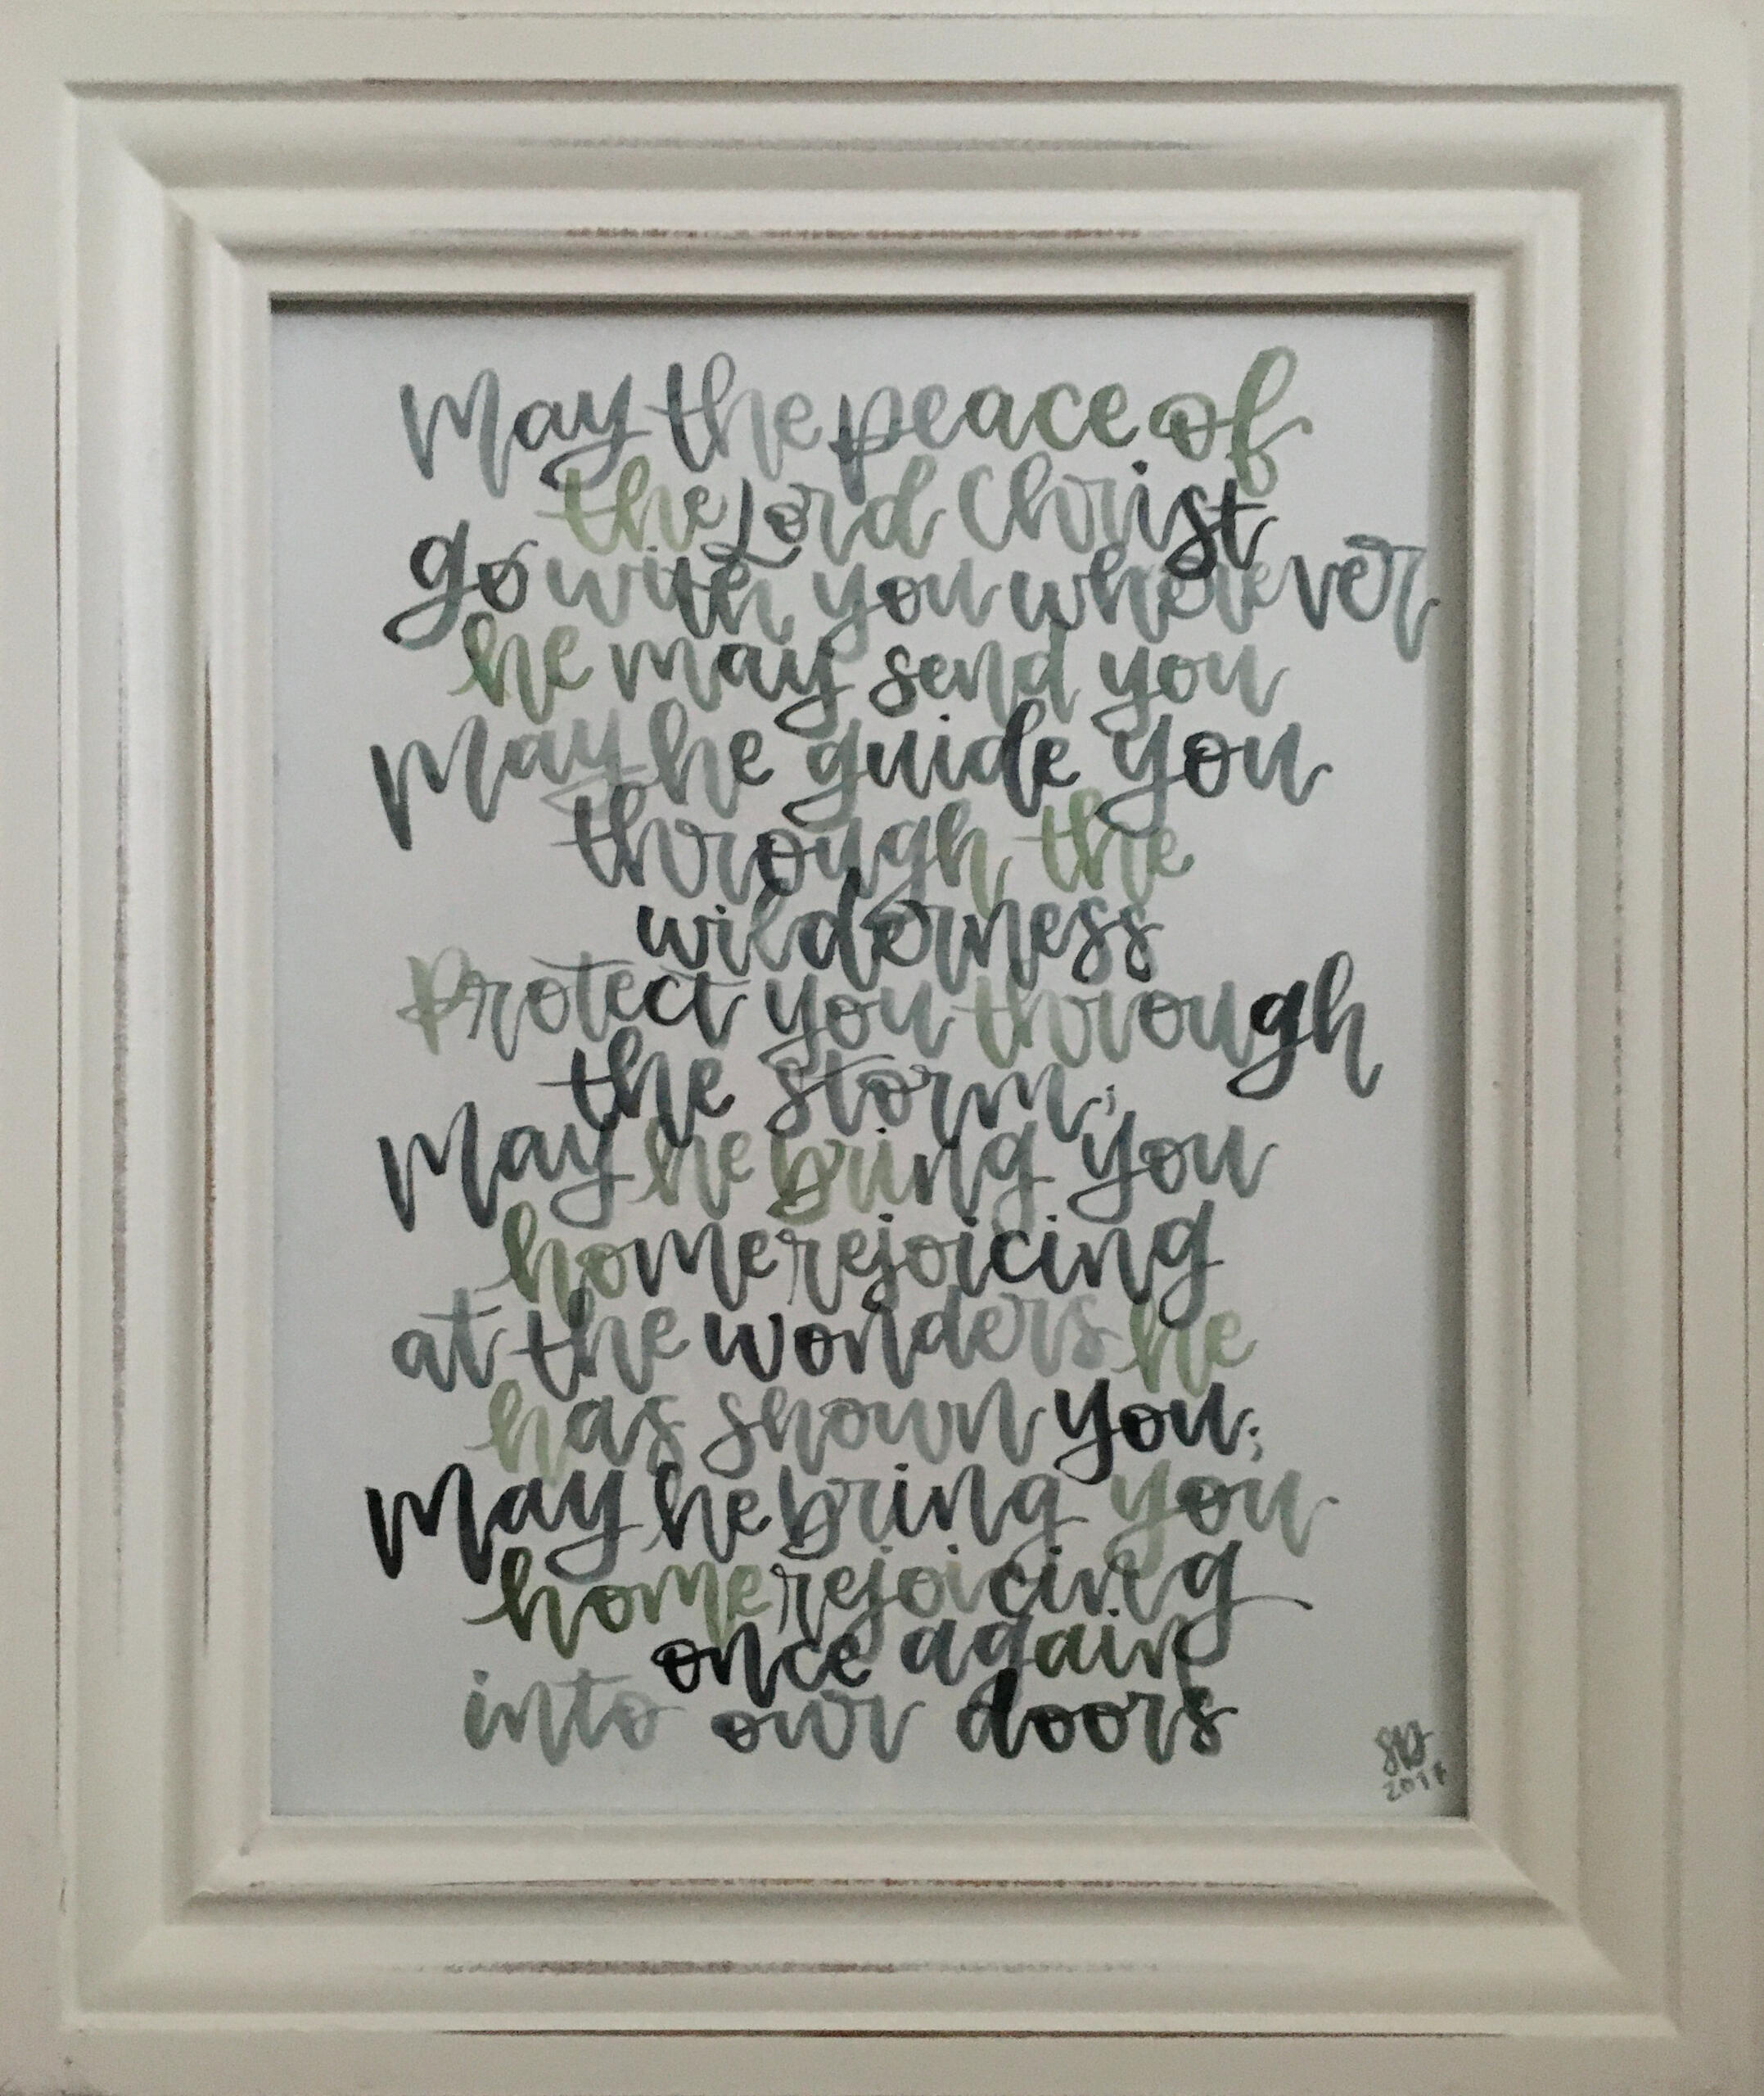 May the peace of
the Lord Christ
go with you wherever
he may send you
May he guide you
through the
wilderness
Protect you through
the storm;
May he bring you
home rejoicing
at the wonders he
has shown you;
May he bring you
home rejoicing
once again
into our doors